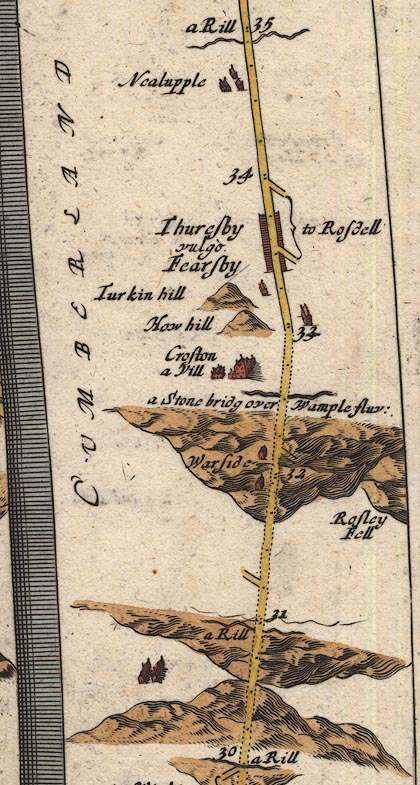 a Rill
35
Nealupple
34
Thuresby
vulgo.
Fearsby
to Rosdell
Turkin hill
How hill
33
Croston
a Vill
a Stone bridg over Wample fluv:
Warside
32
Rosley
Fell
31
a Rill
30
a Rill
CUMBERLAND